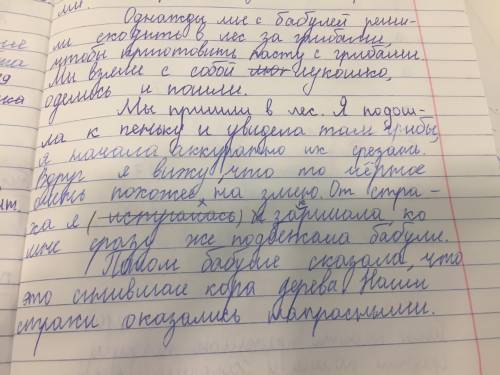 ми.
Однажды мы с бабулей реши-
ли сходить в лес за грибами,
чтобы приготовить пасту с грибами.
Мы взяли с собой лукошко,
оделись и пошли.
Мы пришли в лес. Я подош-
ла к пеньку и увидела там грибы,
я начала аккуратно их срезать.
Вдруг я вижу что то чёрное
очень похожее на змею. От стра-
ха я (испугалась) закричала ко
мне сразу же подбежала бабуля.
Потом бабуля сказала, что
это сгнившая кора дерева Наши
страхи оказались напрасными.